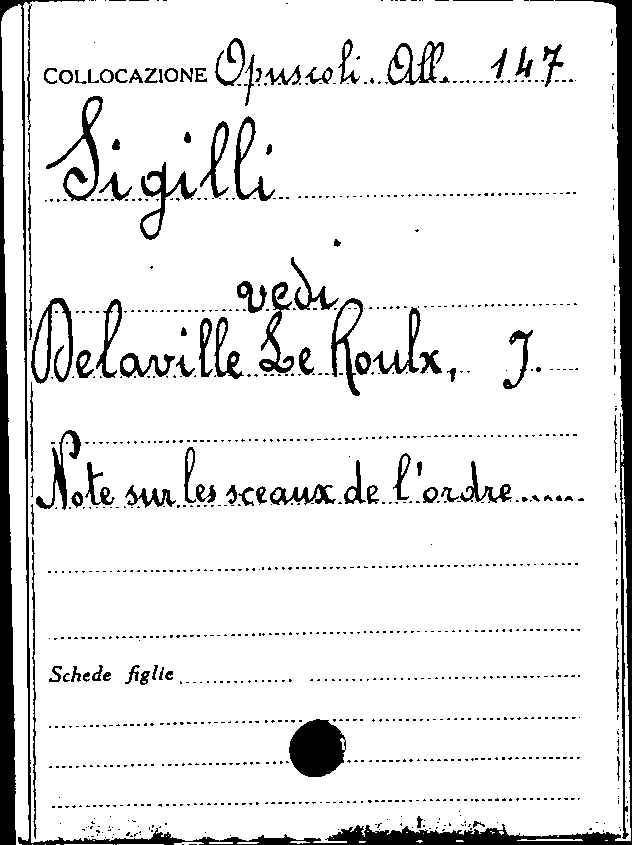 COLLOCAZIONE Opuscoli. All. 147
Sigilli
vedi
Delaville Le Roulx, J.
Note sur les sceaux de l'ordre......
Schede figlie